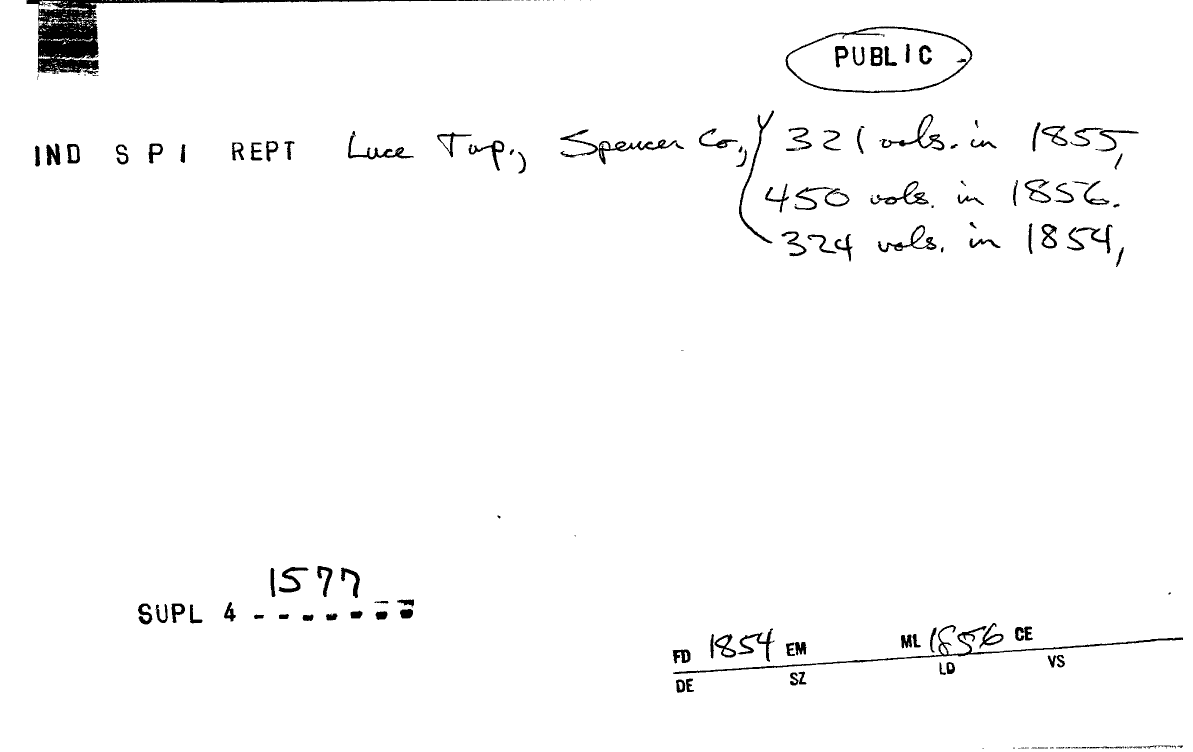 PUBLIC
IND S P I REPT Luce Twp., Spencer Co., 321 vols. in 1855,
450 vols. in 1856.
324 vols. in 1854,
1577
SUPL 4 - - - - - - -
FD 1854 EM ML 1856 CE
DE SZ LD VS